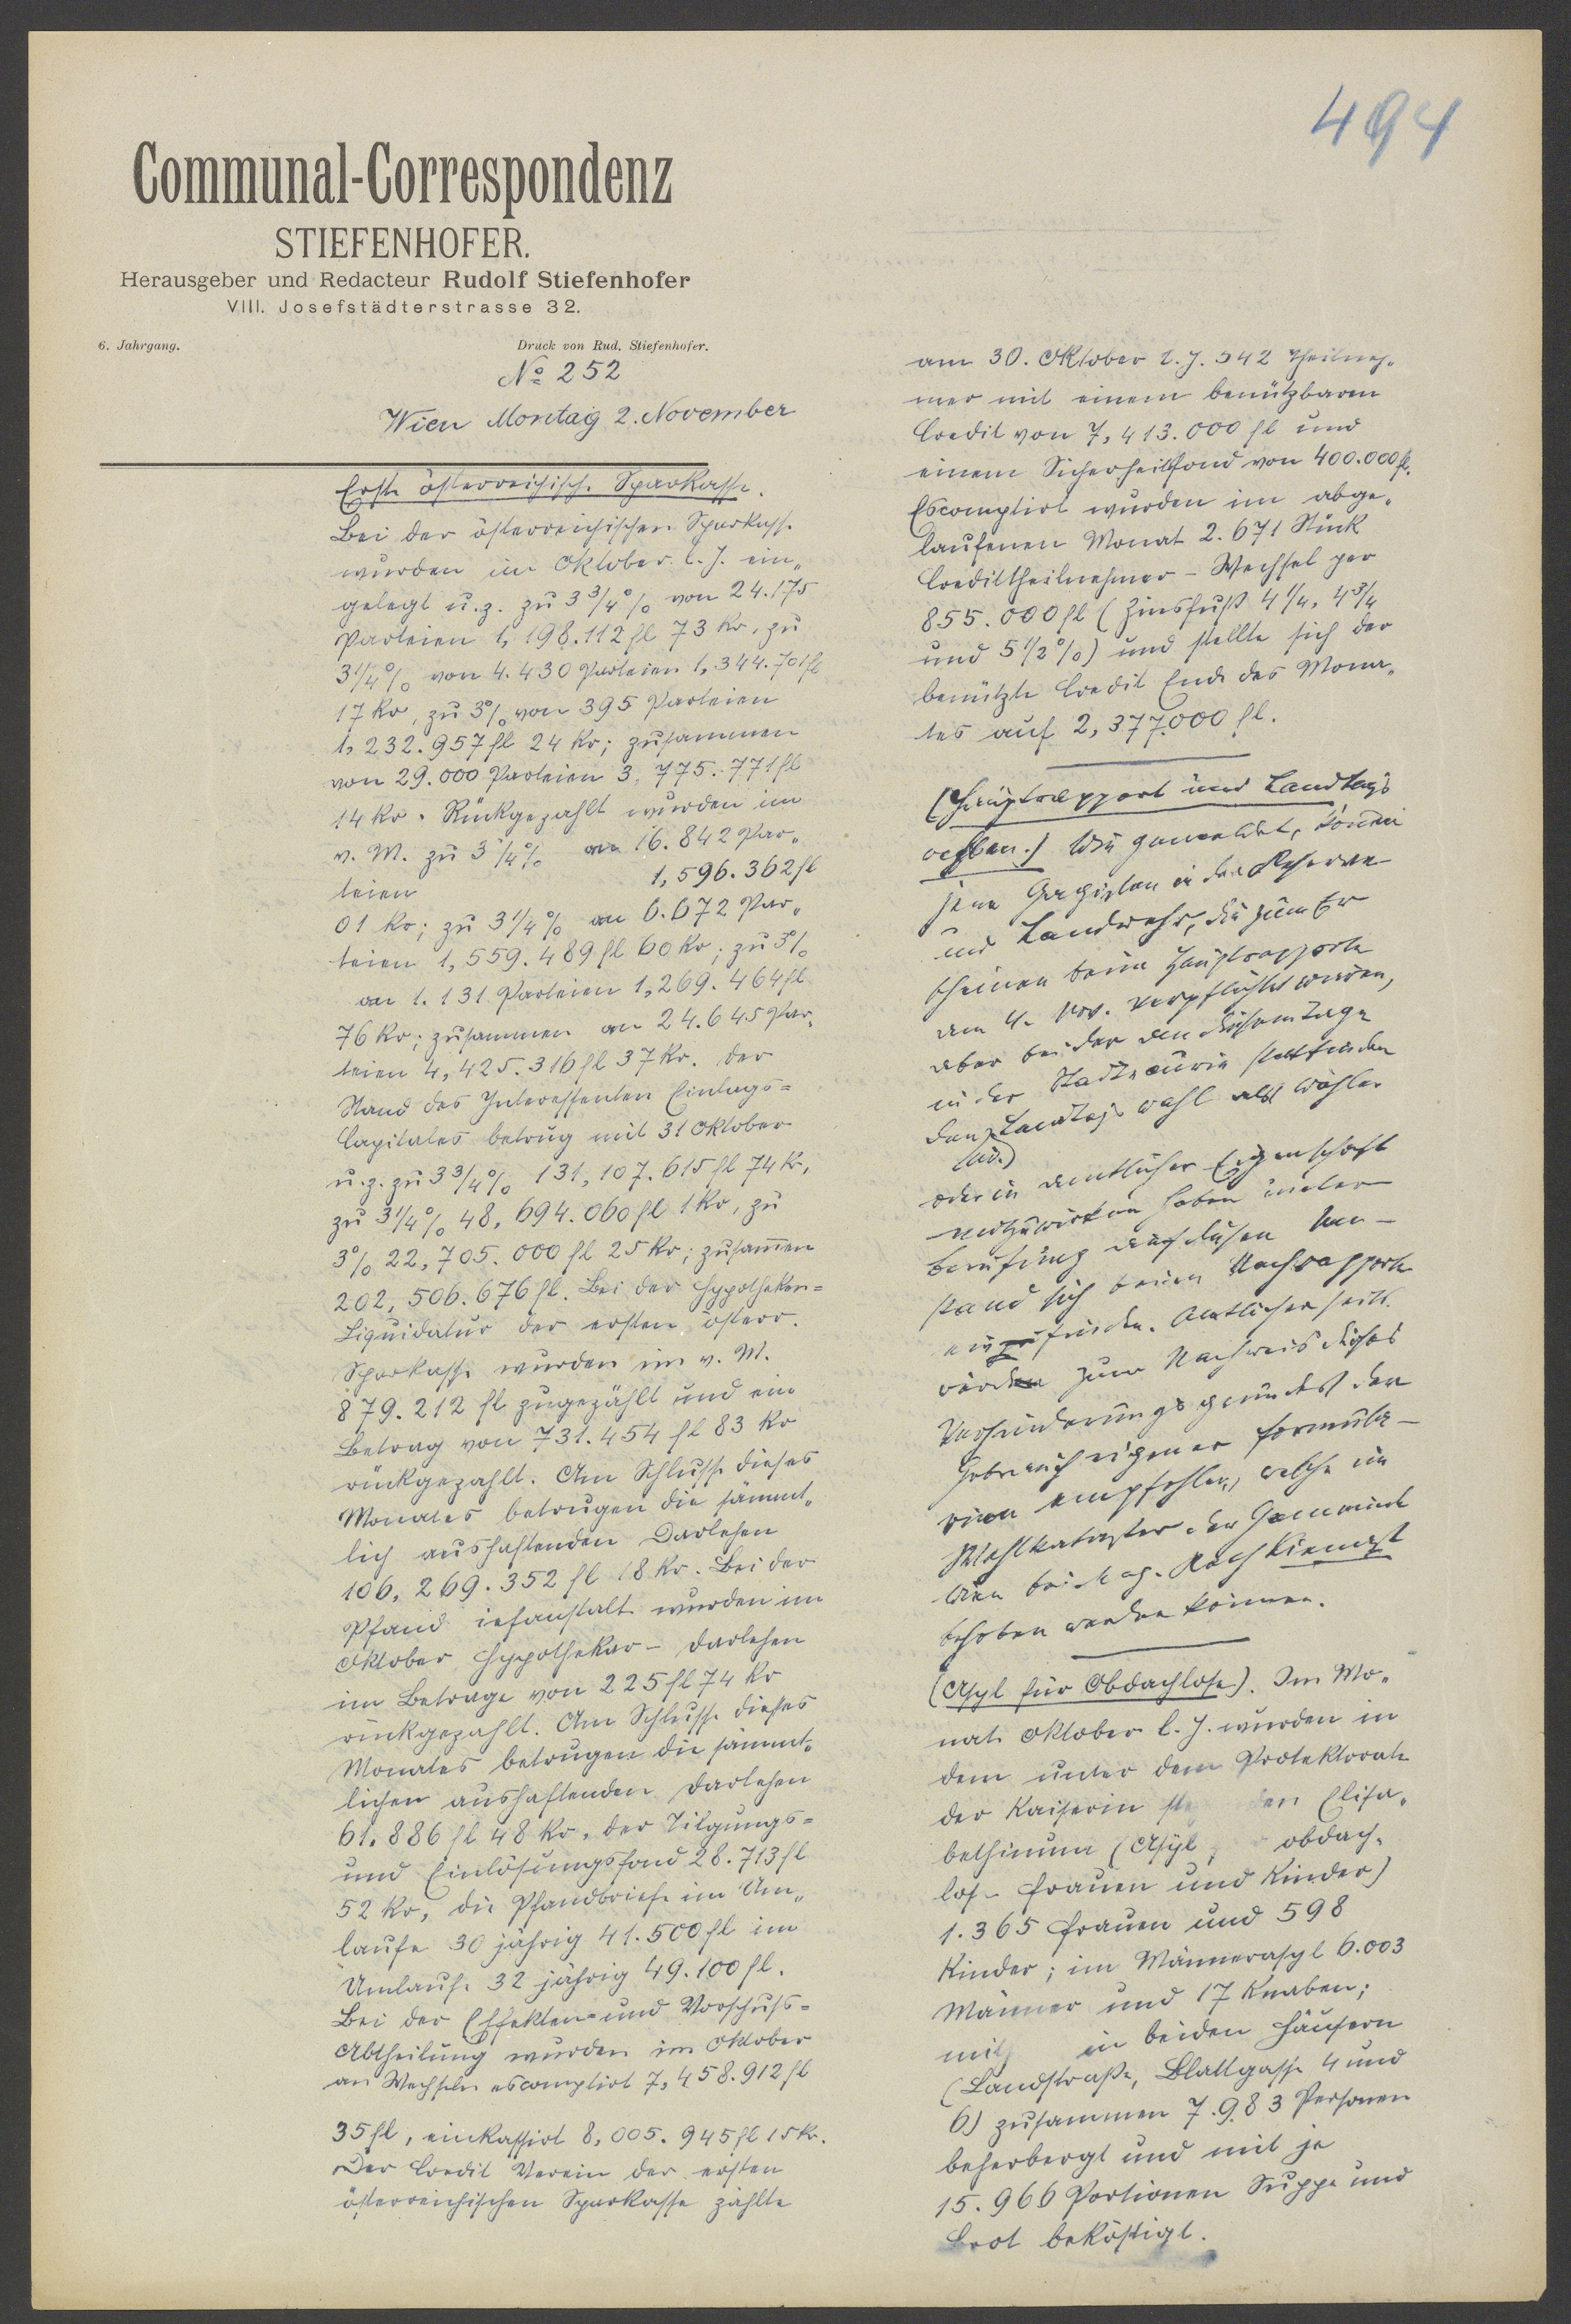 494
Communal-Correspondenz
STIEFENHOFER.
Herausgeber und Redacteur Rudolf Stiefenhofer
VIII. Josefstädterstrasse 32.
6. Jahrgang. Druck von Rud. Stiefenhofer.
No 252
Wien Montag 2. November
Erste österreichische Sparkasse.
Bei der österreichischen Sparkasse
wurden im Oktober l. J. ein„
gelegt u. z. zu 3 3/4 % von 24.175
Parteien 1,198.112 fl 73 Kr, zu
3 1/4 % von 4.430 Parteien 1,344.701 fl
17 Kr, zu 3 % von 395 Parteien
1,232.957 fl 24 Kr; zusammen
von 29.000 Parteien 3,775.771 fl
14 Kr. Rückgezahlt wurden im
v. M. zu 3 3/4 % an 16.842 Par„
teien 1,596.362 fl
01 Kr; zu 3 1/4 % an 6.672 Par„
teien 1,559.489 fl 60 Kr; zu 3 %
an 1.131 Parteien 1,269.464 fl
76 Kr; zusammen an 24.645 Par„
teien 4,425.316 fl 37 Kr. Der
Stand des Interessenten Einlags=
Capitales betrug mit 31 Oktober
u. z. zu 3 3/4 % 131,107.615 fl 74 Kr,
zu 3 1/4 % 48,694.060 fl 1 Kr, zu
3 % 22,705.000 fl 25 Kr; zusam̄en
202,506.676 fl. Bei der Hypotheken=
Liquidatur der ersten österr.
Sparkasse wurden im v. M.
879.212 fl zugezählt und ein
Betrag von 731.454 fl 83 Kr
rückgezahlt. Am Schlusse dieses
Monates betrugen die sämmt„
lich aushaftenden Darlehen
106,269.352 fl 18 Kr. Bei der
Pfand iefanstalt wurden im
Oktober Hypothekar- Darlehen
im Betrage von 225 fl 74 Kr
rückgezahlt. Am Schlusse dieses
Monates betrugen die sämmt„
lichen aushaftenden Darlehen
61.886 fl 48 Kr, der Tilgungs=
und Einlösungsfond 28.713 fl
52 Kr, die Pfandbriefe im Um„
laufe 30 jährig 41.500 fl im
Umlaufe 32 jährig 49.100 fl.
Bei der Effekten= und Vorschuss=
Abtheilung wurden im Oktober
an Wechseln escomptirt 7,458.912 fl
35 fl, einkassirt 8,005.945 fl 15 Kr.
Der Credit Verein der ersten
österreichischen Sparkasse zählte
am 30. Oktober l. J. 542 Theilneh„
mer mit einem benützbaren
Credit von 7,413.000 fl und
einem Sicherheitsfond von 400.000 fl.
Escomptirt wurden im abge„
laufenen Monat 2.671 Stück
Credittheilnehmer - Wechsel per
855.000 fl (Zinsfuß 4 1/4, 4 3/4
und 5 1/2 %) und stellte sich der
benützte Credit Ende des Mona„
tes auf 2,377.000 fl.
(Hauptrapport und Landtags
wahlen.) Wie gemeldet, können
jene Gagisten in der Reserve
und Landwehr, die zum Er
scheinen beim Hauptrapporte
am 4. Nov. verpflichtet wären,
aber bei der an diesem Tage
in der Stadtcurie stattfinden
den Landtagswahl als Wähler
oder in amtlicher Eigenschaft
mitzuwirken haben unter
Berufung auf diesen Um-
stand sich beim Nachrapporte
einzufinden. Amtlicherseits
zum Nachweis dieses
Verhinderungsgrundes der
Gebrauch eigener Formula-
rien empfohlen, welche im
Wahlkataster der Gemeinde
Wien bei Mag. Rath Kienast
behoben werden können.
(Asyl für Obdachlose). Im Mo„
nate Oktober l. J. wurden in
dem unter dem Protektorate
der Kaiserin ste den Elisa„
bethinum (Asyl obdach„
lose Frauen und Kinder)
1.365 Frauen und 598
Kinder; im Männerasyl 6.003
Männer und 17 Knaben;
mith in beiden Häusern
(Landstraße, Blattgasse 4 und
6) zusammen 7.983 Personen
beherbergt und mit je
15.966 Portionen Suppe und
Brot beköstigt.